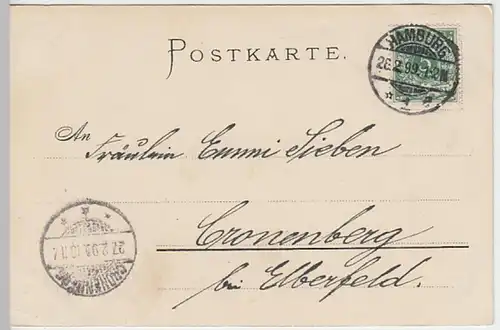 POSTKARTE.
HAMBURG
26.2.99.1-2N
An
Fräulein Emmi Sieben
Cronenberg
bei Elberfeld.
27.2.99.
CRONENBERG